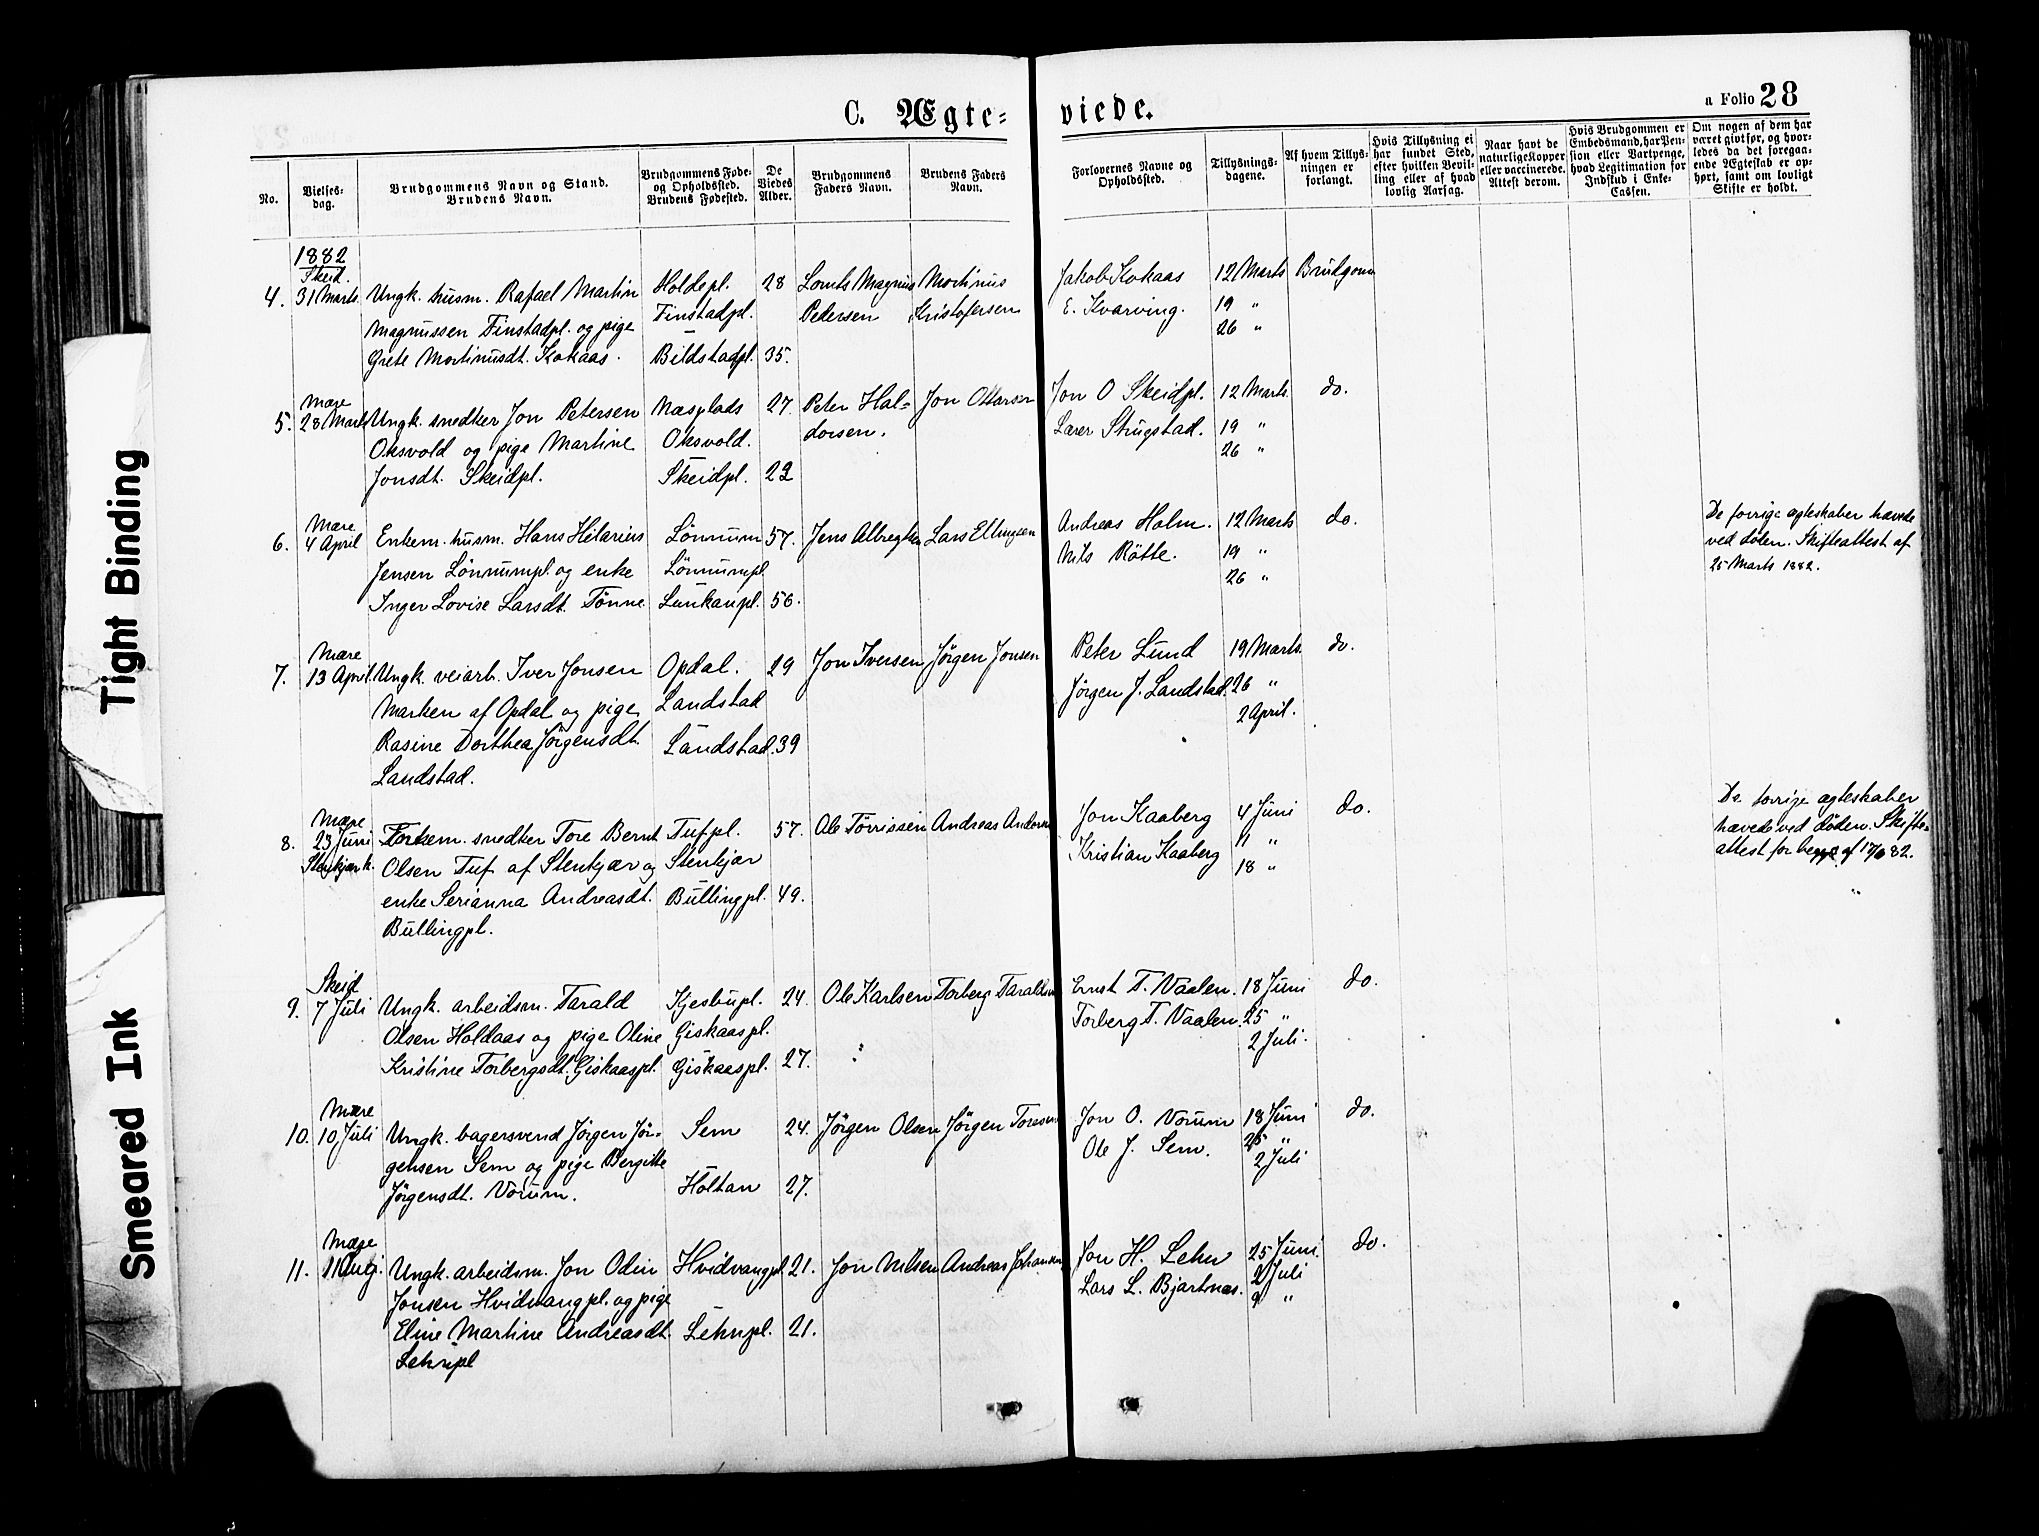 C. Ægte=
viede.
a Folio 28
No.
Vielses-dag.
Brudgommens Navn og Stand.
Brudens Navn.
Brudgommens Føde- og Opholdssted.
Brudens Fødested.
De Viedes Alder.
Brudgommens Faders Navn.
Brudens Faders Navn.
Forlovernes Navne og Opholdssted.
Tillysnings-dagene.
Af hvem Tillysningen er forlangt.
Hvis Tillysning ei har fundet Sted, efter hvilken Bevilling eller af hvad lovlig Aarsag.
Naar havt de naturlige Kopper eller vaccinerede. Attest derom.
Hvis Brudgommen er Embedsmand, har Pension eller Vartpenge, hvad Legitimation for Indskud i Enke-Cassen.
Om nogen af dem har været givtfør, og hvorledes da det foregaaende Ægteskab er ophørt, samt om lovligt Skifte er holdt.
1882
Skeid
4. 31 Marts Ungk. husm. Rafael Martin Holdspl. 28 Lornts Magnus Mortinus Jakob Kokaas 12 Marts Brudgom
Magnussen Finstadpl. og pige Finstadpl. Petersen Kristofersen E. Kvarving. 19 "
Grete Mortinusdt. Kokaas. Bildstadpl. 35. 26 "
Mære
5. 28 Marts Ungk. snedker Jon Petersen Næsplads 27. Peter Hal= Jon Ottersen Jon O Skeidpl. 12 Marts do.
Oksvold og pige Martine Oksvold. dorsen. Lærer Strugstad. 19 "
Jonsdt. Skeidpl. Skeidpl. 23 26 "
Mære
6. 4 April Enkem. husm. Hans Hilarius Lønnum 57. Jens Albregtsen Lars Ellingsen Andreas Holm. 12 Marts do. De forrige ægteskaber hævede
Jensen Lønnumpl. og enke Lønnumpl. Nils Røtte. 19 " ved døden. Skifteattest af
Inger Lovise Larsdt. Tønne Lunkanpl. 56. 26 " 25 Marts 1882.
Mære
7. 13 April. Ungk. veiarb. Iver Jonsen Opdal. 29 Jon Iversen Jørgen Jonsen Peter Lund 19 Marts do.
Marken af Opdal og pige Landstad Jørgen J. Landstad. 26 "
Rasine Dorthea Jørgensdt. Landstad. 39 2 April.
Landstad.
Mære
8. 23 Juni Enkem. snedker Tore Bernt Tufpl. 57. Ole Tørrissen Andreas Jon Kaaberg 4 Juni do. De forrige ægteskaber
Stenkjær k. Olsen Tuf af Stenkjær og Stenkjær Kristian Kaaberg 11 " hævede ved døden. Skifte=
enke Serianna Andreasdt. Bullingpl. 49. 18 " attest for begge af 17/6 82.
Bullingpl.
Skeid
9. 7 Juli Ungk. arbeidsm. Tarald Kjesbupl. 24. Ole Karlsen Torberg Taraldsen Ernst T. Vaalen. 18 Juni do.
Olsen Holdaas og pige Oline Giskaaspl. Torberg T. Vaalen. 25 "
Kristine Torbergsdt. Giskaaspl. Giskaaspl. 27. 2 Juli.
Mære
10. 10 Juli Ungk. bagersvend Jørgen Jør= Sem 24. Jørgen Olsen Jørgen Toresen Jon O. Vorum 18 Juni do.
gensen Sem og pige Bergitte Ole J. Sem. 25 "
Jørgensdt. Vorum. Holtan 27. 2 Juli
Mære
11. 11 Aug. Ungk. arbeidsm. Jon Odin Hvidvangpl. 21. Jon Nilsen Andreas Johansen Jon H. Lehn 25 Juni. do.
Jonsen Hvidvangpl. og pige Lars L. Bjartnæs. 2 Juli
Eline Martine Andreasdt. Lehnpl. 21. 9 "
Lehnpl
Tight Binding
Smeared Ink